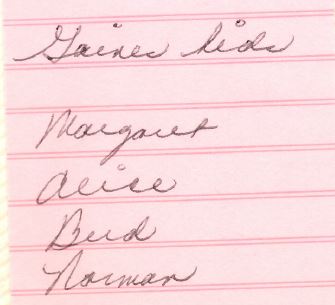 Gaines kids
Margaret
Alice
Bud
Norman